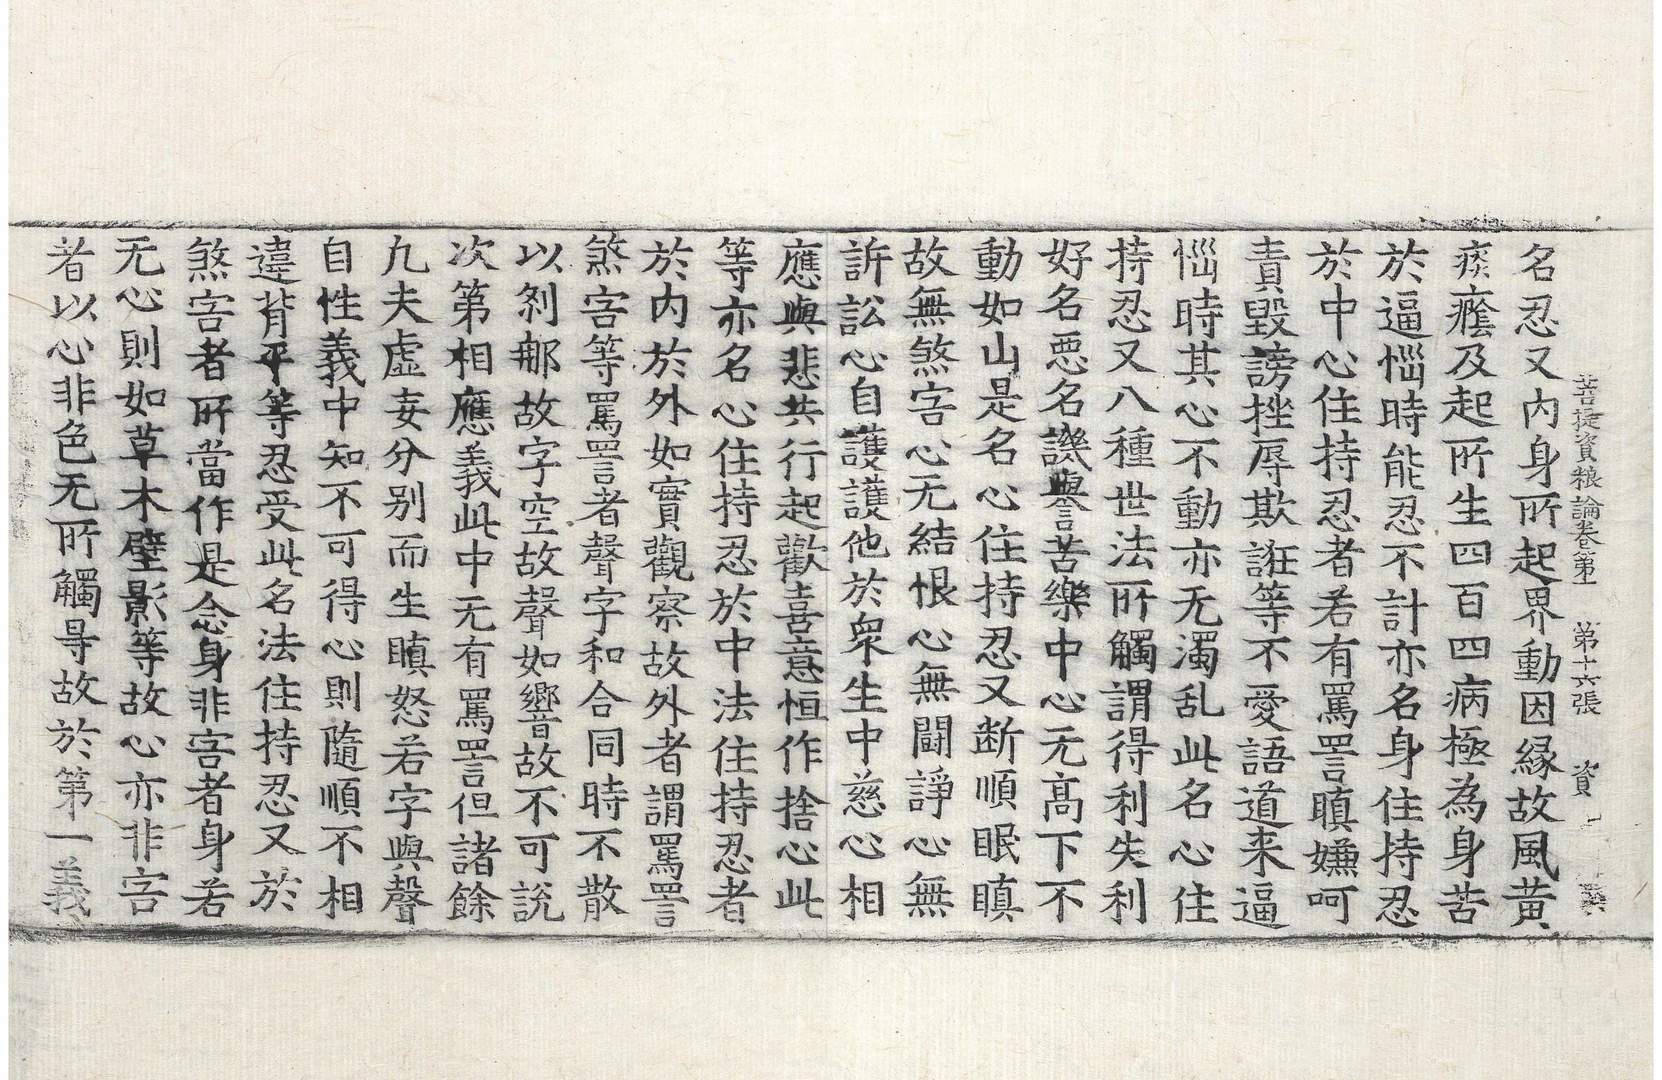 菩提資粮論卷第一 第十六張 資
名忍又内身所起界動因縁故風黄
痰癊及起所生四百四病極為身苦
於逼惱時能忍不計亦名身住持忍
於中心住持忍者若有罵詈瞋嫌呵
責毀謗挫辱欺誑等不愛語道来逼
惱時其心不動亦无濁乱此名心住
持忍又八種世法所觸謂得利失利
好名惡名譏譽苦樂中心无髙下不
動如山是名心住持忍又断順眠瞋
故無煞害心无結恨心無鬪諍心無
訴訟心自護護他於衆生中慈心相
應與悲共行起歡喜意恒作捨心此
等亦名心住持忍於中法住持忍者
於内於外如實觀察故外者謂罵詈
煞害等罵詈者聲字和合同時不散
以刹那故字空故聲如響故不可說
次第相應義此中无有罵詈但諸餘
凡夫虛妄分别而生瞋怒若字與聲
自性義中知不可得心則隨順不相
違背平等忍受此名法住持忍又於
煞害者所當作是念身非害者身若
无心則如草木壁影等故心亦非害
者以心非色无所觸㝵故於第一義